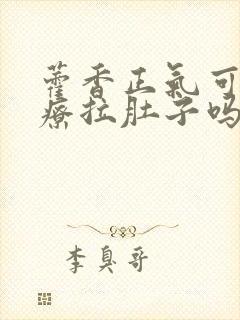 藿香正氣可
療拉肚子嗎
李臭哥